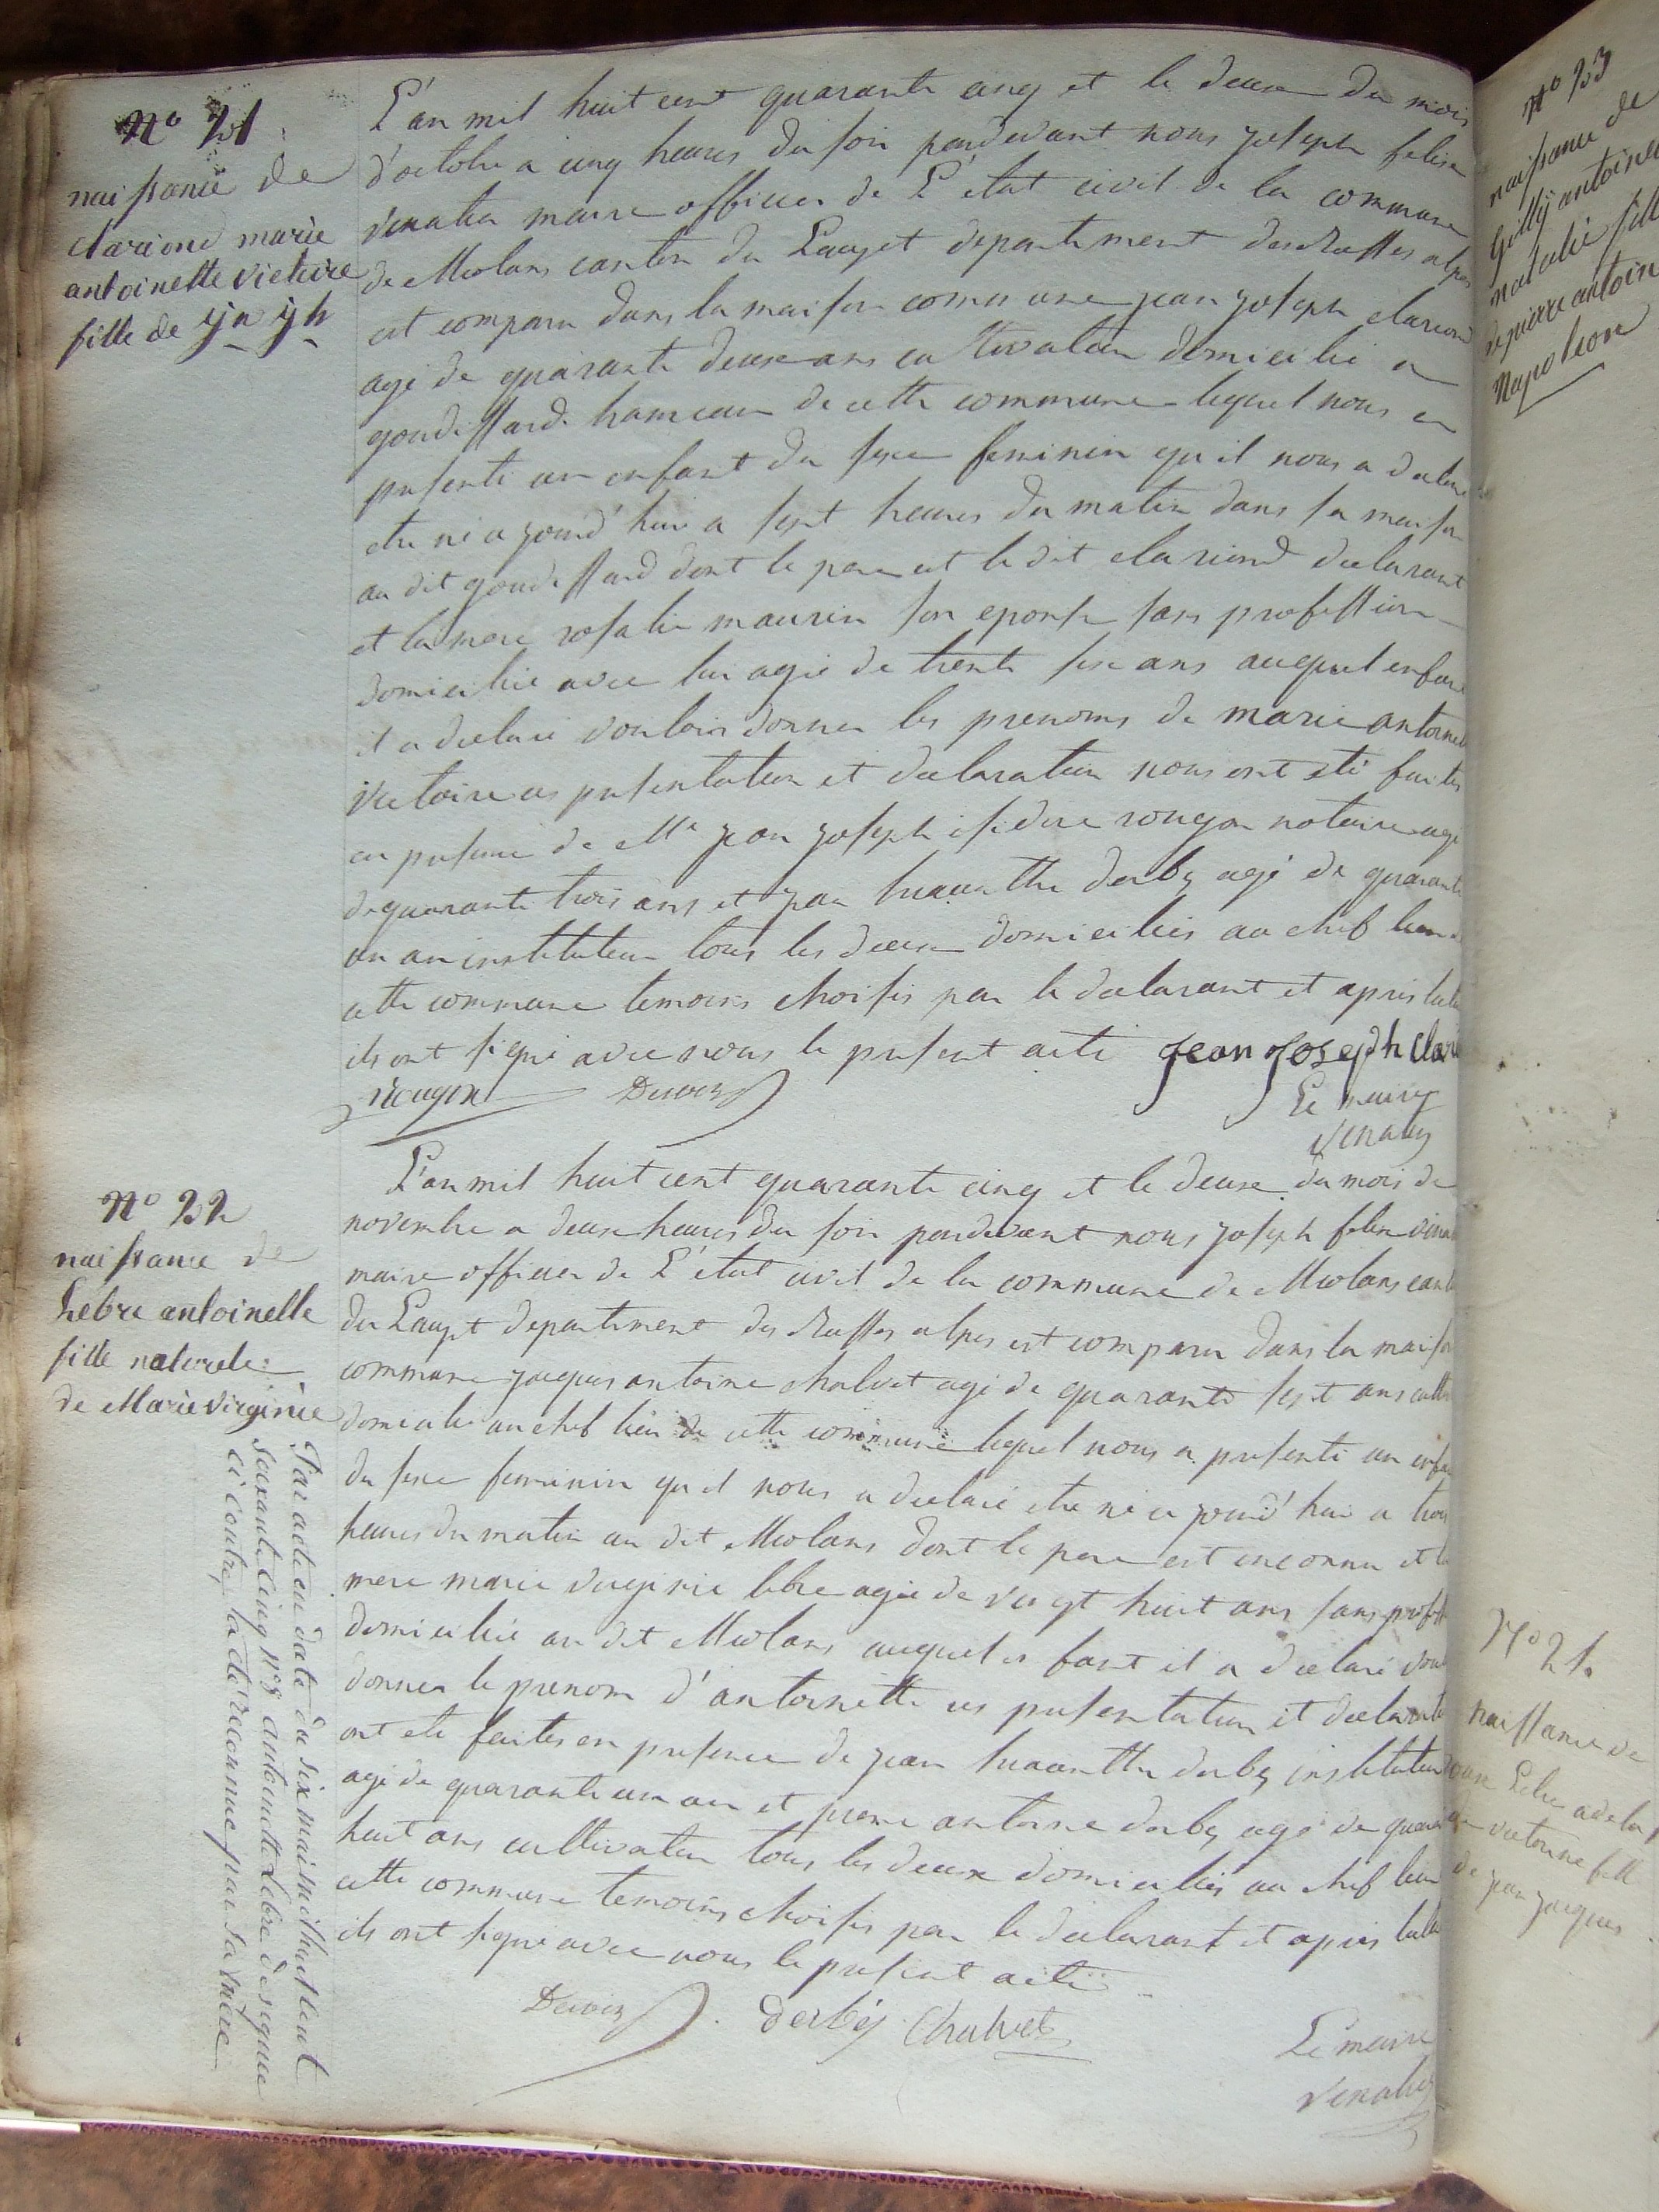 N° 21
naissance de
clariond marie
antoinette victoire
fille de jn jh
L'an mil huit cent quarante cinq et le deux du mois
d'octobre a cinq heures du soir pardevant nous joseph felix
venatier maire officier de L'etat civil de la commune
de Meolans canton du Lauzet departement des Basses alpes
est comparu dans la maison commune jean joseph clariond
agé de quarante deux ans cultivateur domicilié a
goudissard hameau de cette commune lequel nous a
presenté un enfant du sexe feminin qu'il nous a declaré
etre né a jourd'hui a sept heures du matin dans sa maison
au dit goudissard dont le pere est le dit clariond declarant
et la mere rosalie maurin son epouse sans profession
domiciliée avec lui agée de trente six ans auquel enfant
il a declaré vouloir donner les prenoms de marie antoinette
victoire ces presentation et declaration nous ont été faites
en presence de Me jean joseph isidore rougon notaire agé
de quarante trois ans et jean hiacinthe derbez agé de quarante
un an instituteur tous les deux domiciliés au chef lieu de
cette commune temoins choisis par le declarant et apres lecture
ils ont signé avec nous le present acte Jean Joseph Clari
Rougon Derbez
Le maire
Venatier
N° 22
naissance de
Lebre antoinette
fille naturele
de Marie virginie
L'an mil huit cent quarante cinq et le deux du mois de
novembre a deux heures du soir pardevant nous joseph felix venatier
maire officier de L'etat civil de la commune de Meolans canton
du Lauzet departement des Basses alpes est comparu dans la maison
commune jacques antoine chalvet agé de quarante sept ans cultiv
domicilié au chef lieu de cette commune lequel nous a presenté un enfant
du sexe feminin qu'il nous a declaré etre né a jourd'hui a trois
heures du matin au dit Meolans dont le pere est inconnu et la
mere marie virginie lebre agée de vingt huit ans sans profess
domiciliée au dit Meolans auquel enfant il a declaré voul
donner le prenom d'antoinette ces presentation et declaration
ont eté faites en presence de jean hiacinthe derbez instituteur
agé de quarante un an et pierre antoine derbez agé de quarante
huit ans cultivateur tous les deux domiciliés au chef lieu
cette commune temoins choisis par le declarant et apres lecture
ils ont signé avec nous le present acte
Derbez Derbéz Chalvet
Le maire
Venatier
Par acte en date du six mai mil huit cent
soixante cinq n° 8 antoinette Lebre designée
ci contre, a été reconnue par sa mère
N° 23
naissance de
Gilly antoinette
natalie fille
de pierre antoine
Napoleon
N° 24
naissance de
Lebre adela
victorine fille
de jean jacques